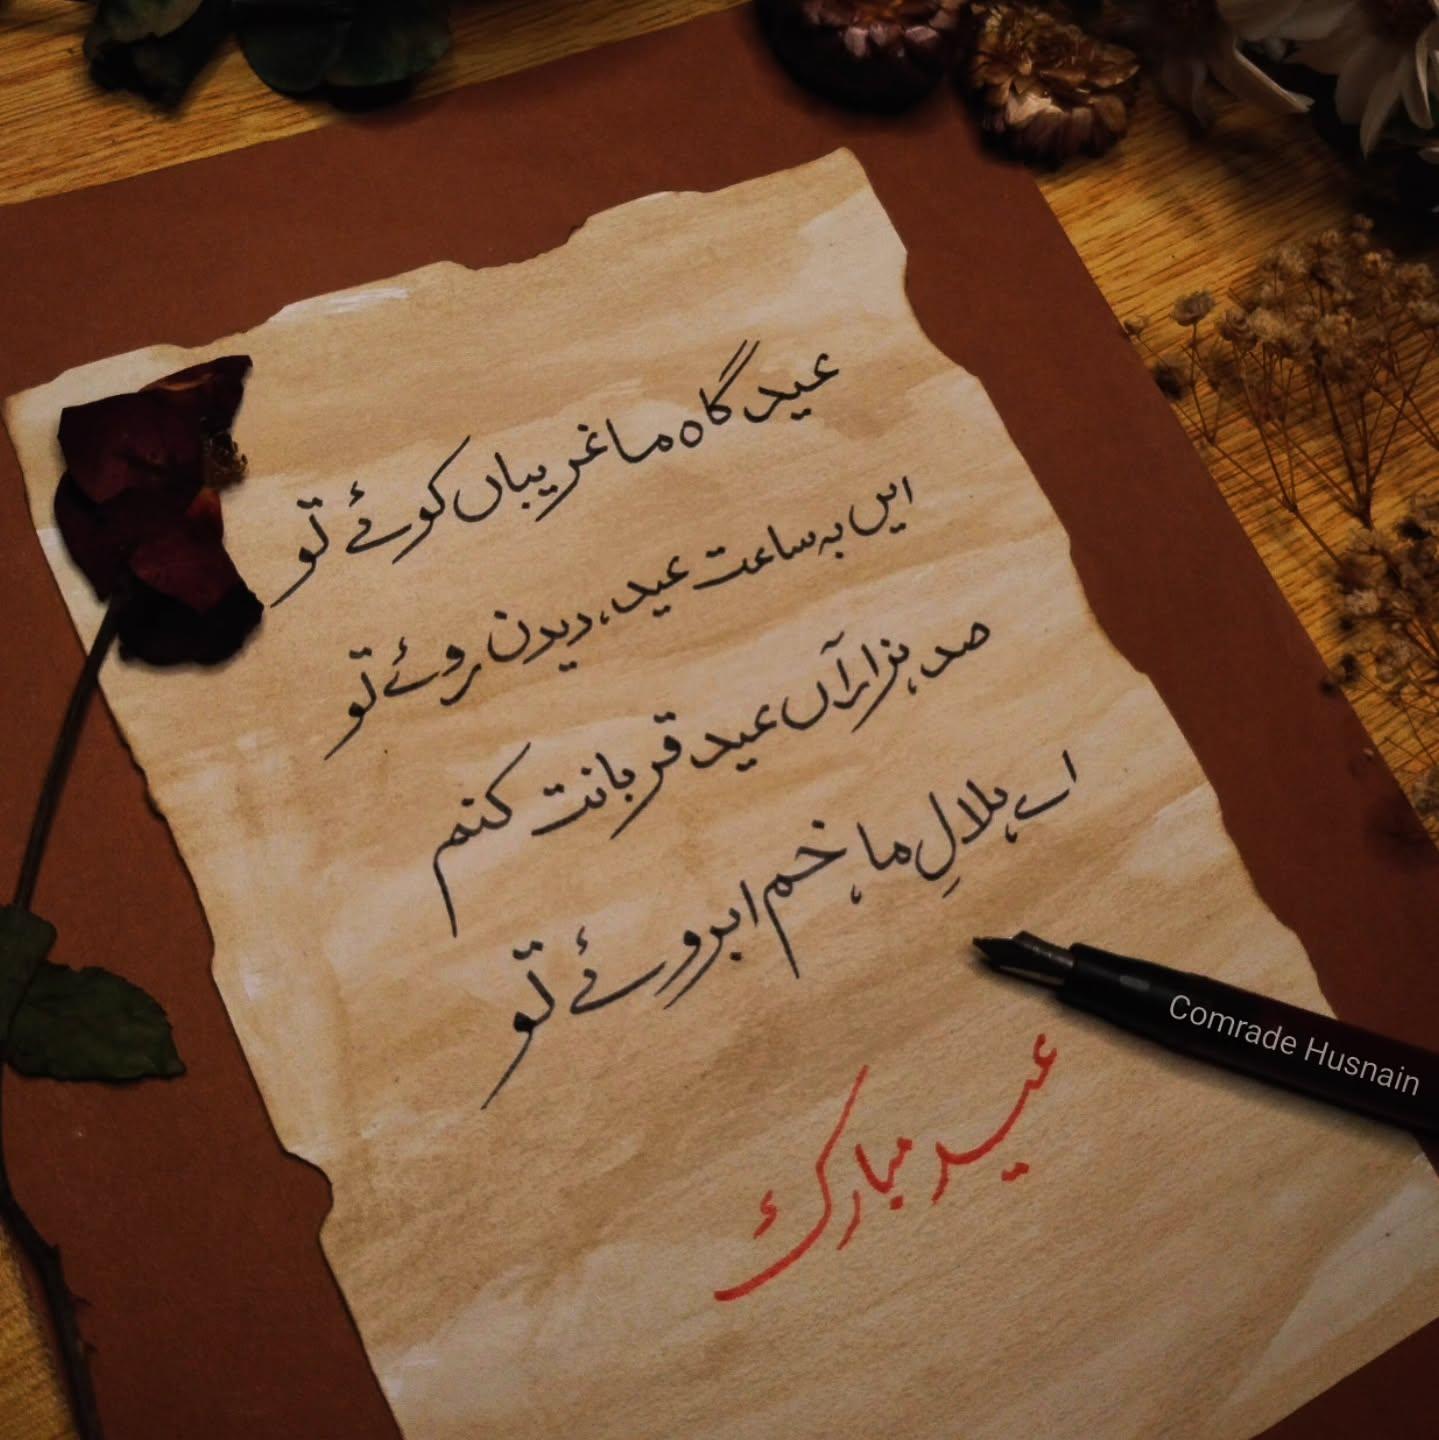 عید گاہ ما غریباں کوئے تو
ایں بہ ساعت عید، دیدن روئے تو
صد ہزاراں عید قربانت کنم
اے ہلالِ ما، خم ابروئے تو
عید مبارک
Comrade Husnain